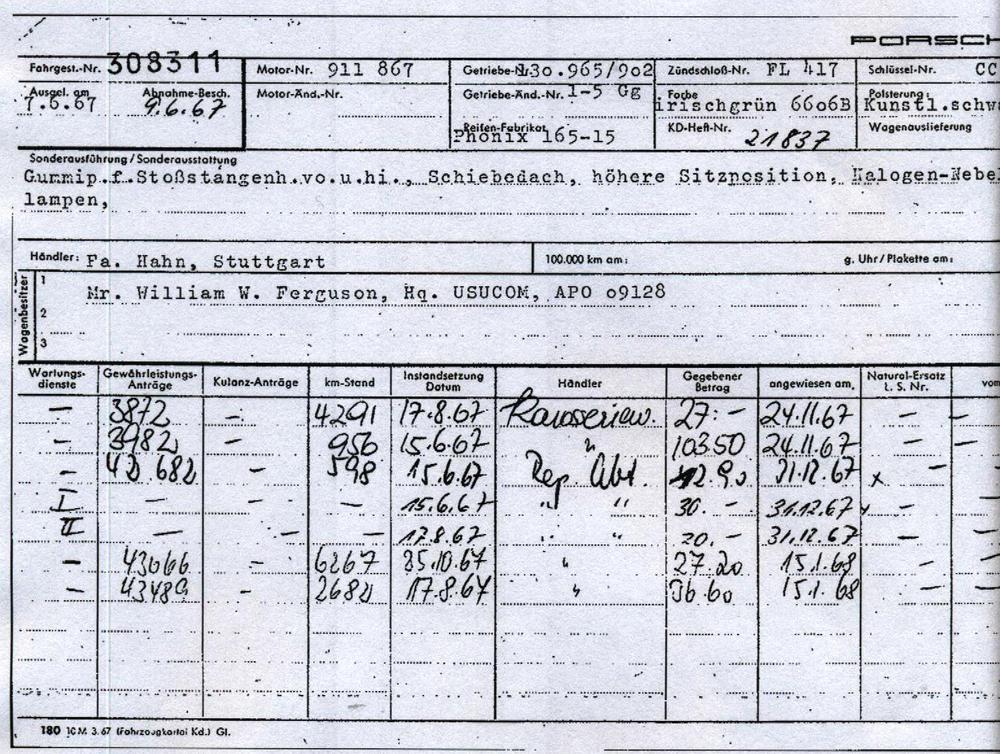 PORSCH
Fahrgest.-Nr. 308311 Motor-Nr. 911 867 Getriebe-Nr. 130.965/902 Zündschloß-Nr. FL 417 Schlüssel-Nr. CC
Ausgel. am Abnahme-Besch. Motor-Änd.-Nr. Getriebe-Änd.-Nr. 1-5 Gg Farbe Polsterung:
7.6.67 9.6.67 irischgrün 6606B Kunstl.schw
Reifen-Fabrikat KD-Heft-Nr. 21837 Wagenauslieferung
Phönix 165-15
Sonderausführung/Sonderausstattung
Gummip.f.Stoßstangenh.vo.u.hi., Schiebedach, höhere Sitzposition, Halogen-Nebel
lampen,
Händler: Fa. Hahn, Stuttgart 100.000 km am: g. Uhr/Plakette am:
Wagenbesitzer
1 Mr. William W. Ferguson, Hq. USUCOM, APO 09128
2
3
Wartungs- Gewährleistungs- Kulanz-Anträge km-Stand Instandsetzung Händler Gegebener angewiesen am, Natural-Ersatz vom
dienste Anträge Datum Betrag L. S. Nr.
— 3872 — 4291 17.8.67 27.- 24.11.67 — —
— 3982 — 956 15.6.67 " 103.50 24.11.67 — —
— 42 682 — 598 15.6.67 Rep. Abt. 31.12.67 x —
I — — — 15.6.67 " " 30.- 31.12.67 — —
II — — — 17.8.67 " " 20.- 31.12.67 — —
— 43066 — 6267 25.10.67 " 27.20 15.1.68 — —
— 43489 — 2682 17.8.67 " 36.60 15.1.68 — —
180 10M 3.67 (Fahrzeugkartei Kd.) Gl.